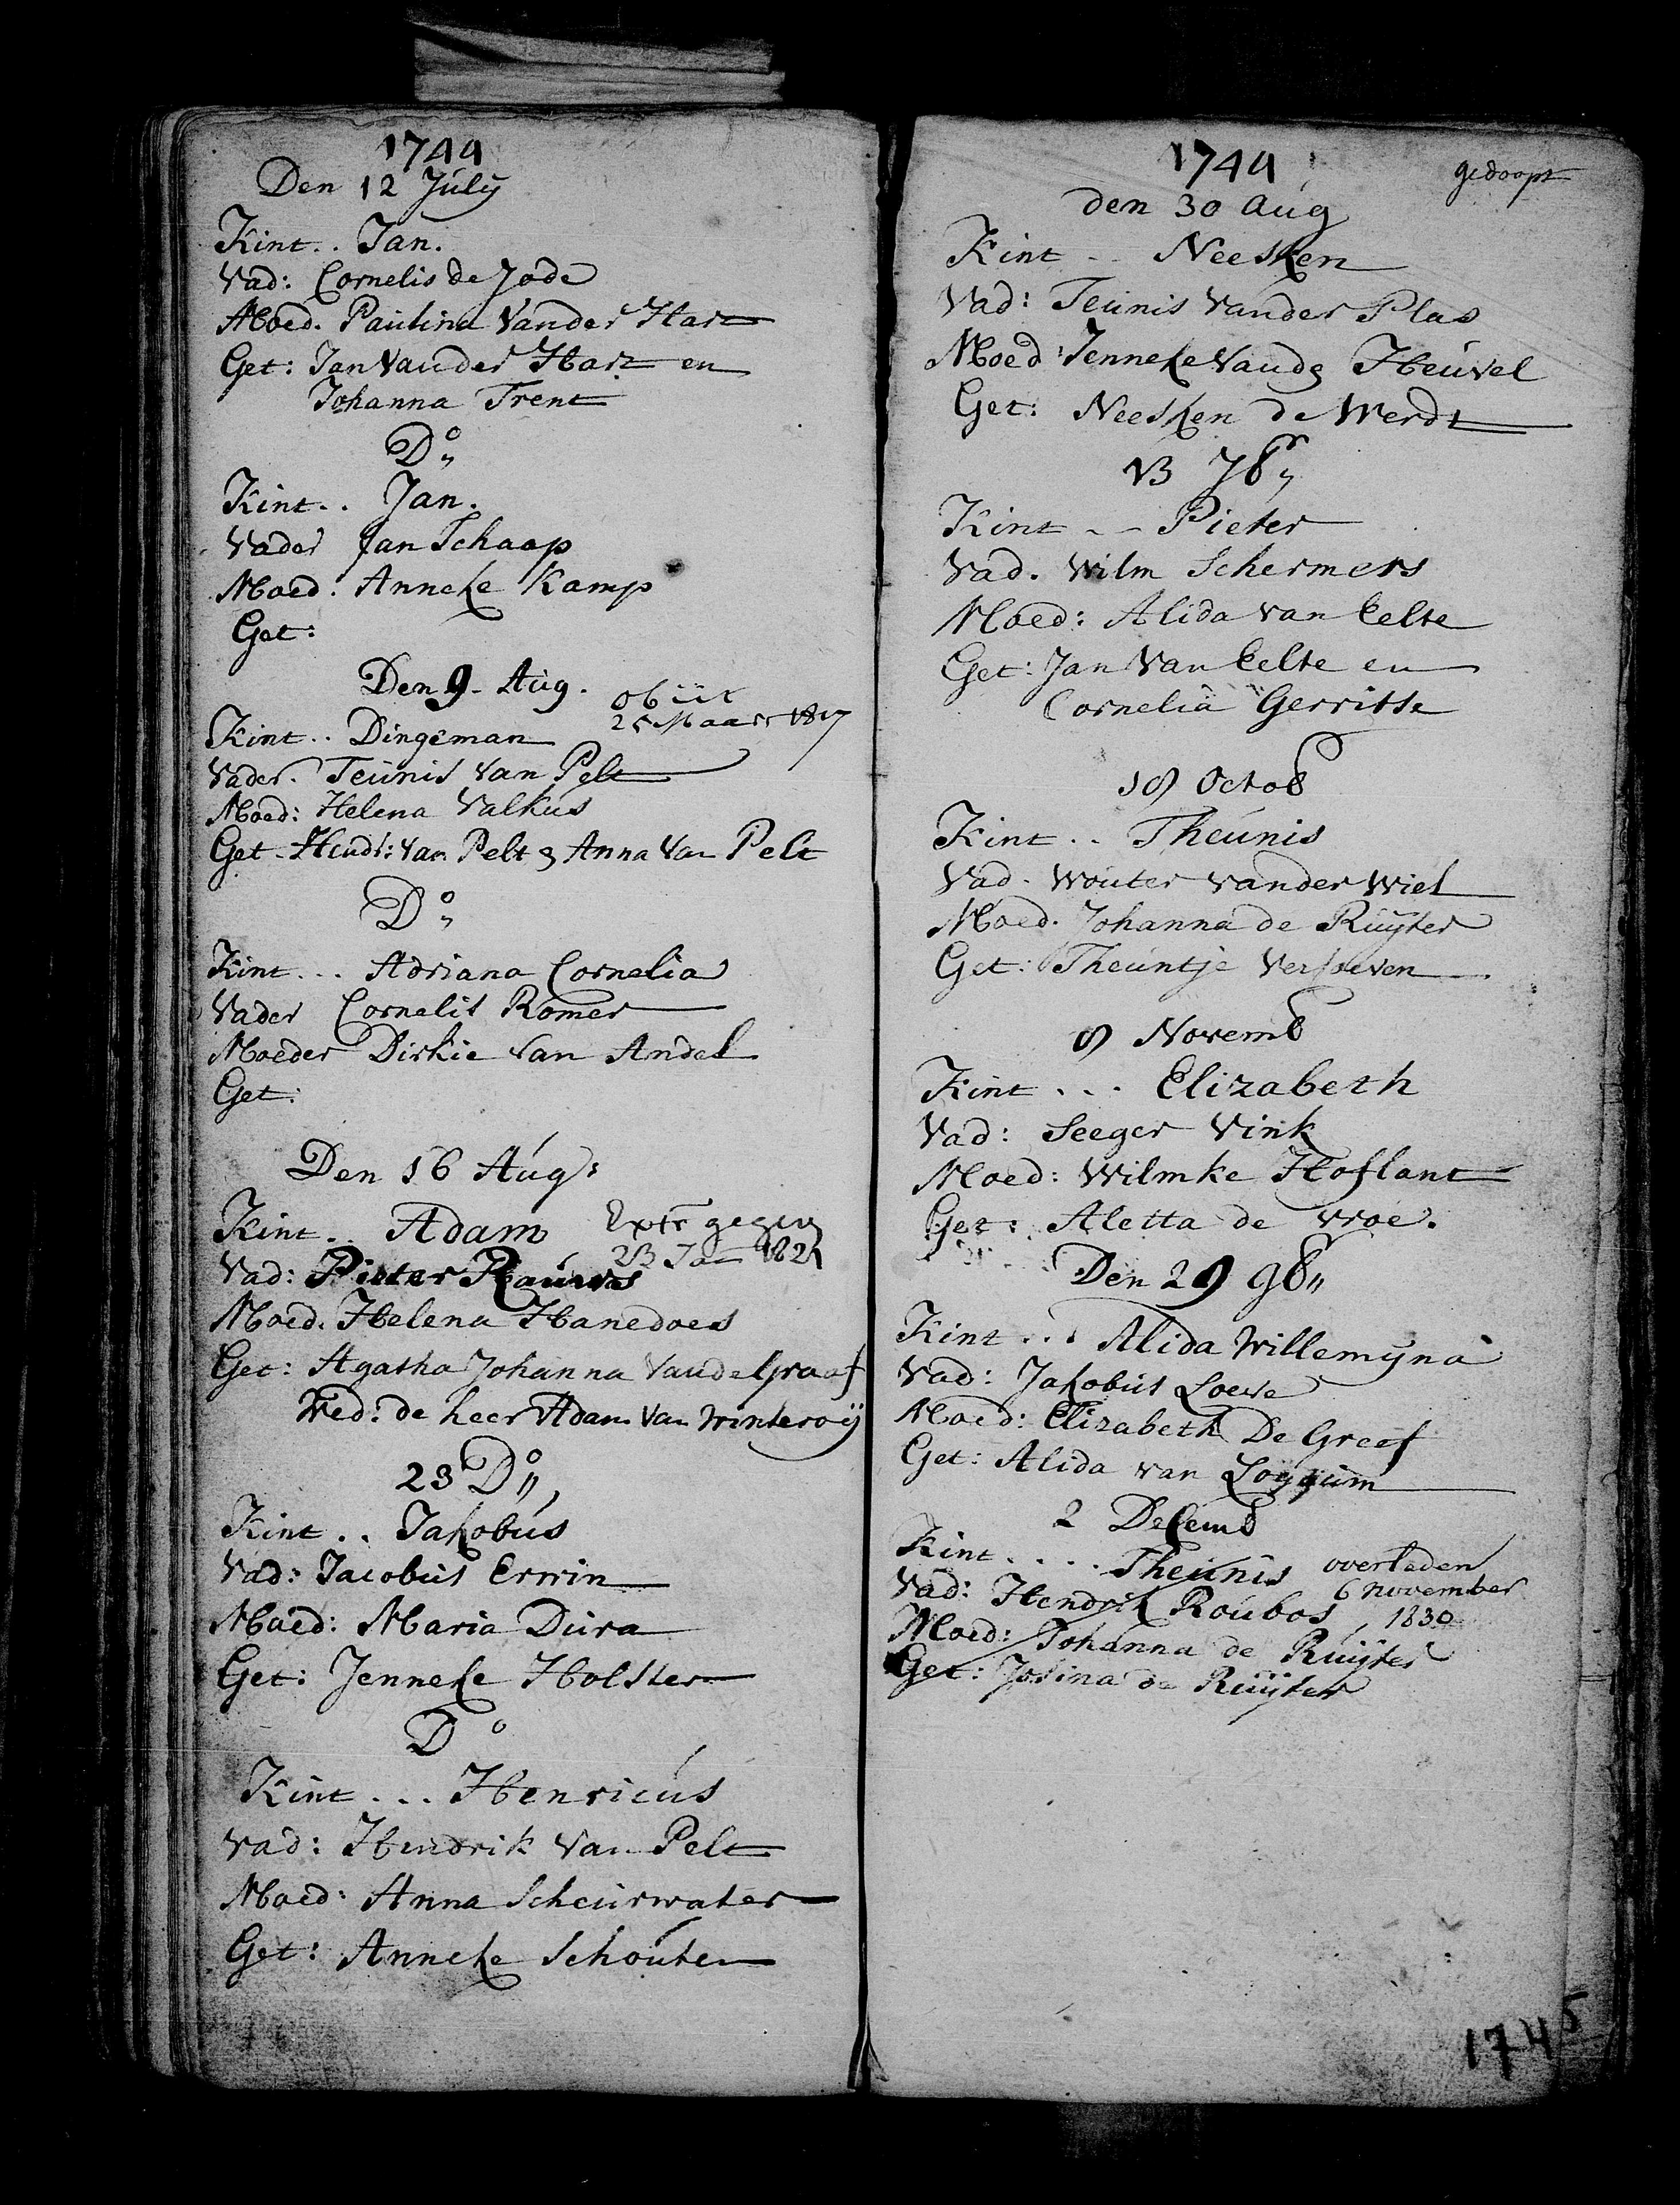 1744
Den 12 Júlÿ
Kint.. Jan.
Vad: Cornelis de Jode
Moed. Paulina Vander Hart
Get: Jan Vander Hart en
Johanna Trent
Do„
Kint.. Jan.
Vader Jan Schaap
Moed: Anneke Kamp
Get:
Den 9 Aúg.
obiit
25 Maart 1817
Kint.. Dingeman
Vader. Teúnis Van Pelt
Moed: Helena Valkús
Get. Hendr: Van Pelt & Anna Van Pelt
Do„
Kint... Adriana Cornelia
Vader Cornelis Romer
Moeder Dirkie Van Andel
Get:
Den 16 Aúg:
Kint.. Adam
Extr gegev
23 Jan 1821
Vad: Pieter
Moed. Helena Hanedoes
Get: Agatha Johanna Vande Graaf
Wed. de heer Adam Van Winteroÿ
23 Do„
Kint.. Jakobús
Vad: Jacobús Erwin
Moed: Maria Dúra
Get: Jenneke Holster
Do
Kint... Henricús
Vad: Hendrik Van Pelt
Moed: Anna Scheúrwater
Get: Anneke Schoúten
1744
gedoopt
den 30 Aúg
Kint.. Neesken
Vad: Teúnis Vander Plas
Moed: Jenneke Vandr Heúvel
Get: Neesken de Werdt
13 78r„
Kint.. Pieter
Vad. Wilm Schermers
Moed: Alida van Eelte
Get: Jan Van Eelte en
Cornelia Gerritse
18 Octob
Kint.. Theúnis
Vad. Woúter Vander Wiel
Moed. Johanna de Rúÿter
Get: Theúntje Verhoeven
8 Novemb
Kint... Elizabeth
Vad: Seeger Vink
Moed: Wilmke Hoflant
Get: Aletta de Vroe.
Den 29 98„
Kint... Alida Willemÿna
Vad: Jakobús Loeve
Moed: Elizabeth De Greef
Get: Alida van
2 Decemb
Kint.... Theúnis
overleden
6 november
1830
Vad: Hendrik Roúbos
Moed: Johanna de Rúÿter
Get: Josina de Rúÿter
1745